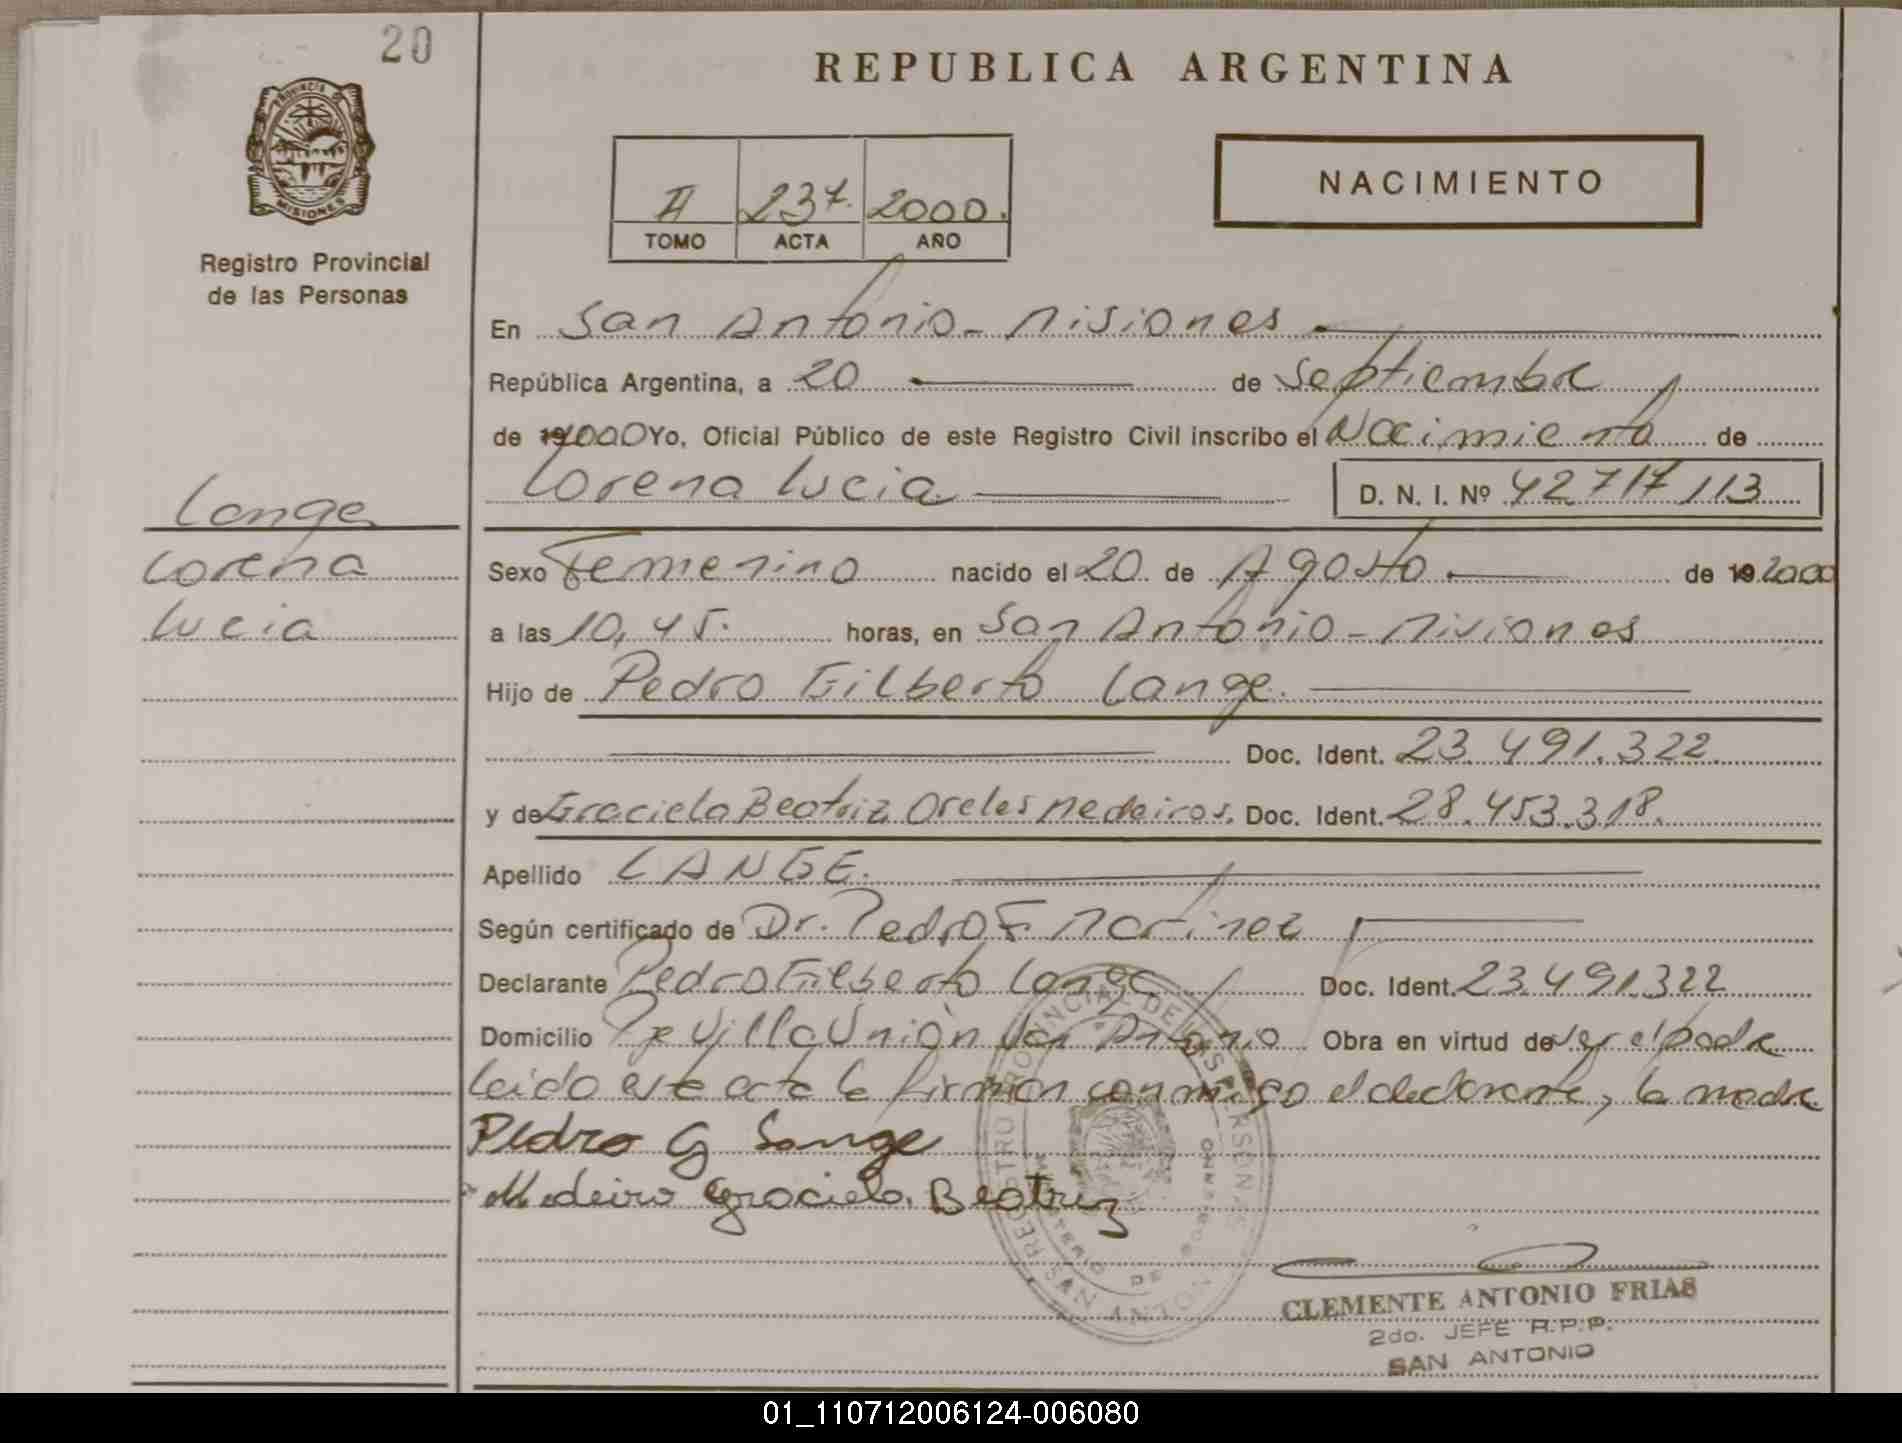 20
REPUBLICA ARGENTINA
PROVINCIA DE MISIONES
Registro Provincial
de las Personas
II 237. 2000.
TOMO ACTA AÑO
NACIMIENTO
En San Antonio - Misiones
República Argentina, a 20 de Septiembre
de 2000 Yo, Oficial Público de este Registro Civil inscribo el Nacimiento de
Lorena Lucia D. N. I. Nº 42717113
Lange
Lorena
Lucia
Sexo Femenino nacido el 20 de Agosto de 19 2000
a las 10,45. horas, en San Antonio - Misiones
Hijo de Pedro Gilberto Lange.
Doc. Ident. 23.491.322.
y de Graciela Beatriz Oreles Medeiros. Doc. Ident. 28.453.318.
Apellido LANGE.
Según certificado de Dr. Pedro F. Martinez
Declarante Pedro Gilberto Lange Doc. Ident. 23.491.322
Domicilio Villa Unión San Antonio Obra en virtud de ser el padre
leido este acta la firman conmigo el declarante, la madre
Pedro G Lange
Medeiro Graciela Beatriz
REGISTRO PROVINCIAL DE LAS PERSONAS
SAN ANTONIO
CLEMENTE ANTONIO FRIAS
2do. JEFE R.P.P.
SAN ANTONIO
01_110712006124-006080